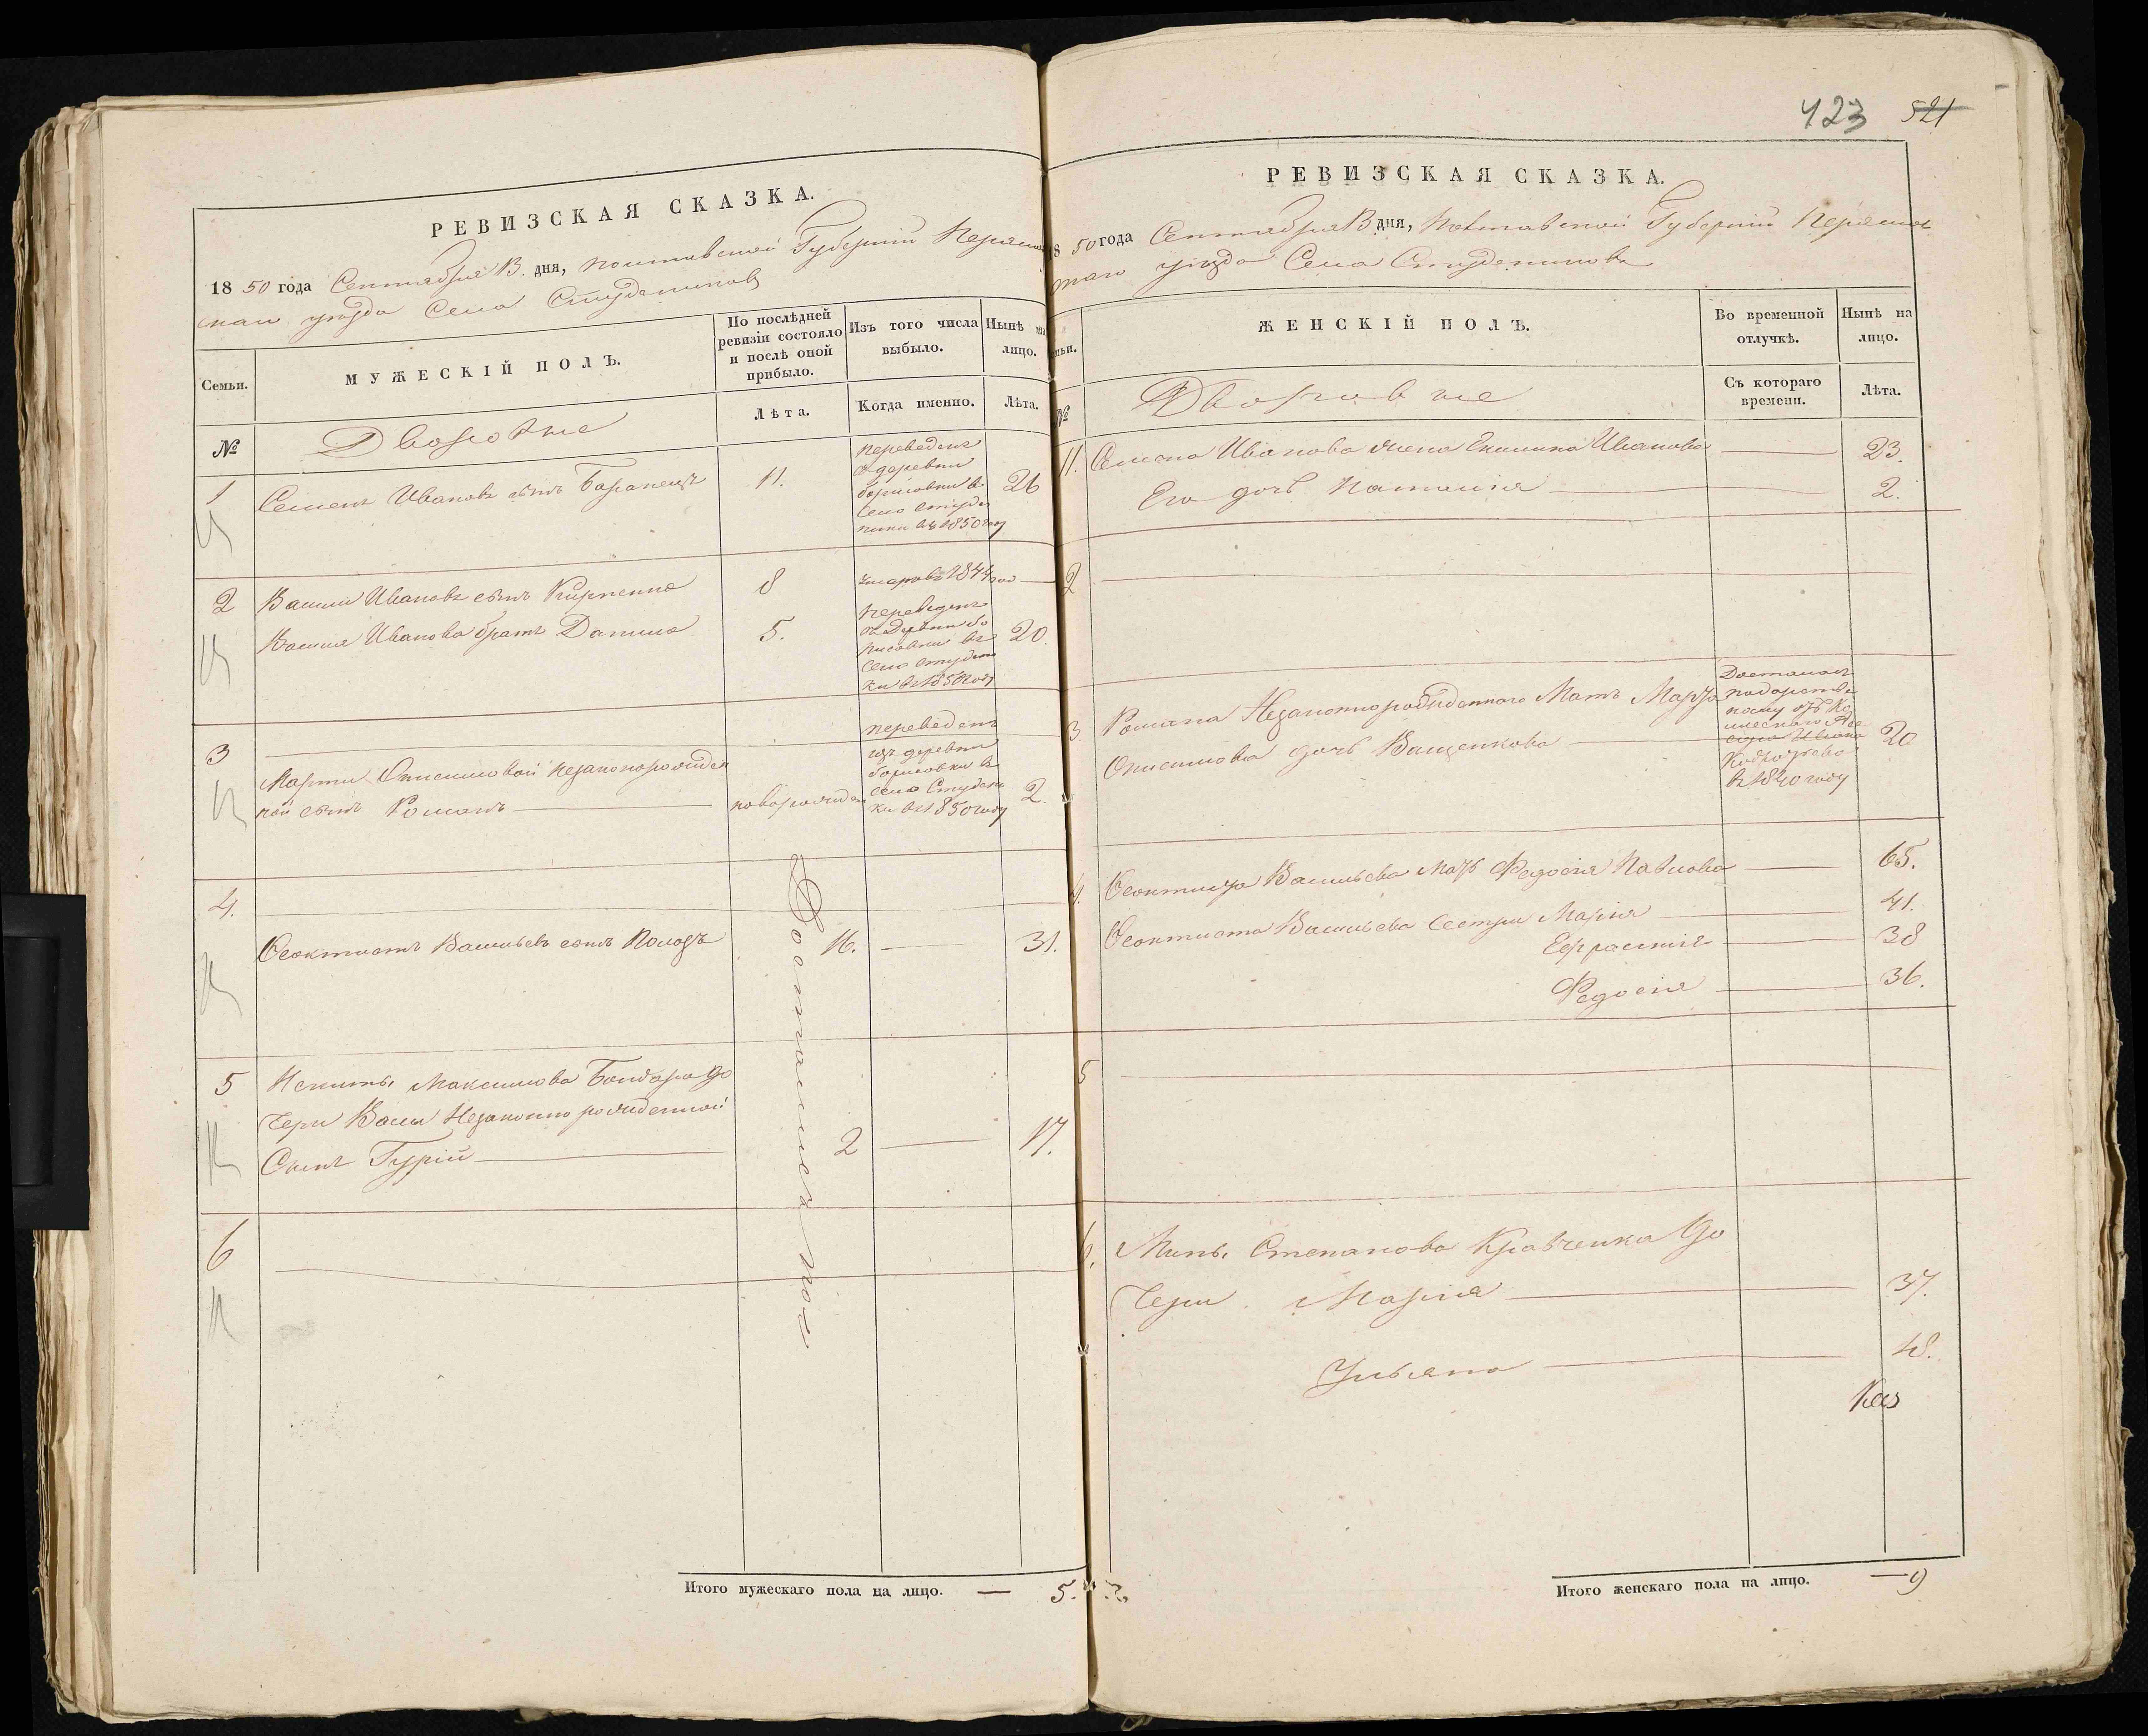 РЕВИЗСКАЯ СКАЗКА.
18 50 года Сентября В. дня, Полтавской Губернии Переяслов
скаго уезда Села Студениковъ
Семьи.
МУЖЕСКІЙ ПОЛЪ.
По послѣдней
ревизіи состояло
и послѣ оной
прибыло.
Изъ того числа
выбыло.
Нынѣ на
лицо.
№
Дворовые
Лѣта.
Когда именно.
Лѣта.
1
Семенъ Ивановъ сынъ Баранецъ
11.
переведенъ
деревни
борисовки в
Село студе
ники въ 1850 году
26
2
Василий Ивановъ сынъ Кирпенко
8
умеръ въ 1844 год
Василия Иванова братъ Данило
5.
Переведенъ
из Деревни бо
рисовки въ
Село студени
ки въ 1850 году
20.
3
Марти Онисимовой незаконорожден
ной сынъ Романъ
новорожден
переведенъ
изъ деревни
борисовки в
село Студени
ки въ 1850 году
2.
4.
Феоктистъ Васильевъ сынъ Колодъ
16.
31.
5
Никиты Максимова Бондаря до
чери Васы Незаконно рожденной
Сынъ Гурій
2
17.
6
Достались по
Итого мужескаго пола на лицо. — 5.
423 521
РЕВИЗСКАЯ СКАЗКА.
18 50 года Сентября В дня, Полтавской Губернии Переяслов
скаго уезда Села Студениковъ
Семьи.
ЖЕНСКІЙ ПОЛЪ.
Во временной
отлучкѣ.
Нынѣ на
лицо.
№
Дворовые
Съ котораго
времени.
Лѣта.
Семена Иванова жена Екилина Иванова
23.
Его дочь Наталия
2.
2
3.
Романа Незаконнорожденного Мать Марфа
Онисимова дочь Ващенкова
Досталась
въ 1840 году
20
4.
Феоктиста Васильева мать Федосия Павлова
65.
Феоктиста Васильева Сестры Марія
41.
Ефросинія
38
Федосія
36.
5
6.
Мины Степанова Кравченка До
чери Марія
37.
Ульяна
18.
Итого женскаго пола на лицо. — 9